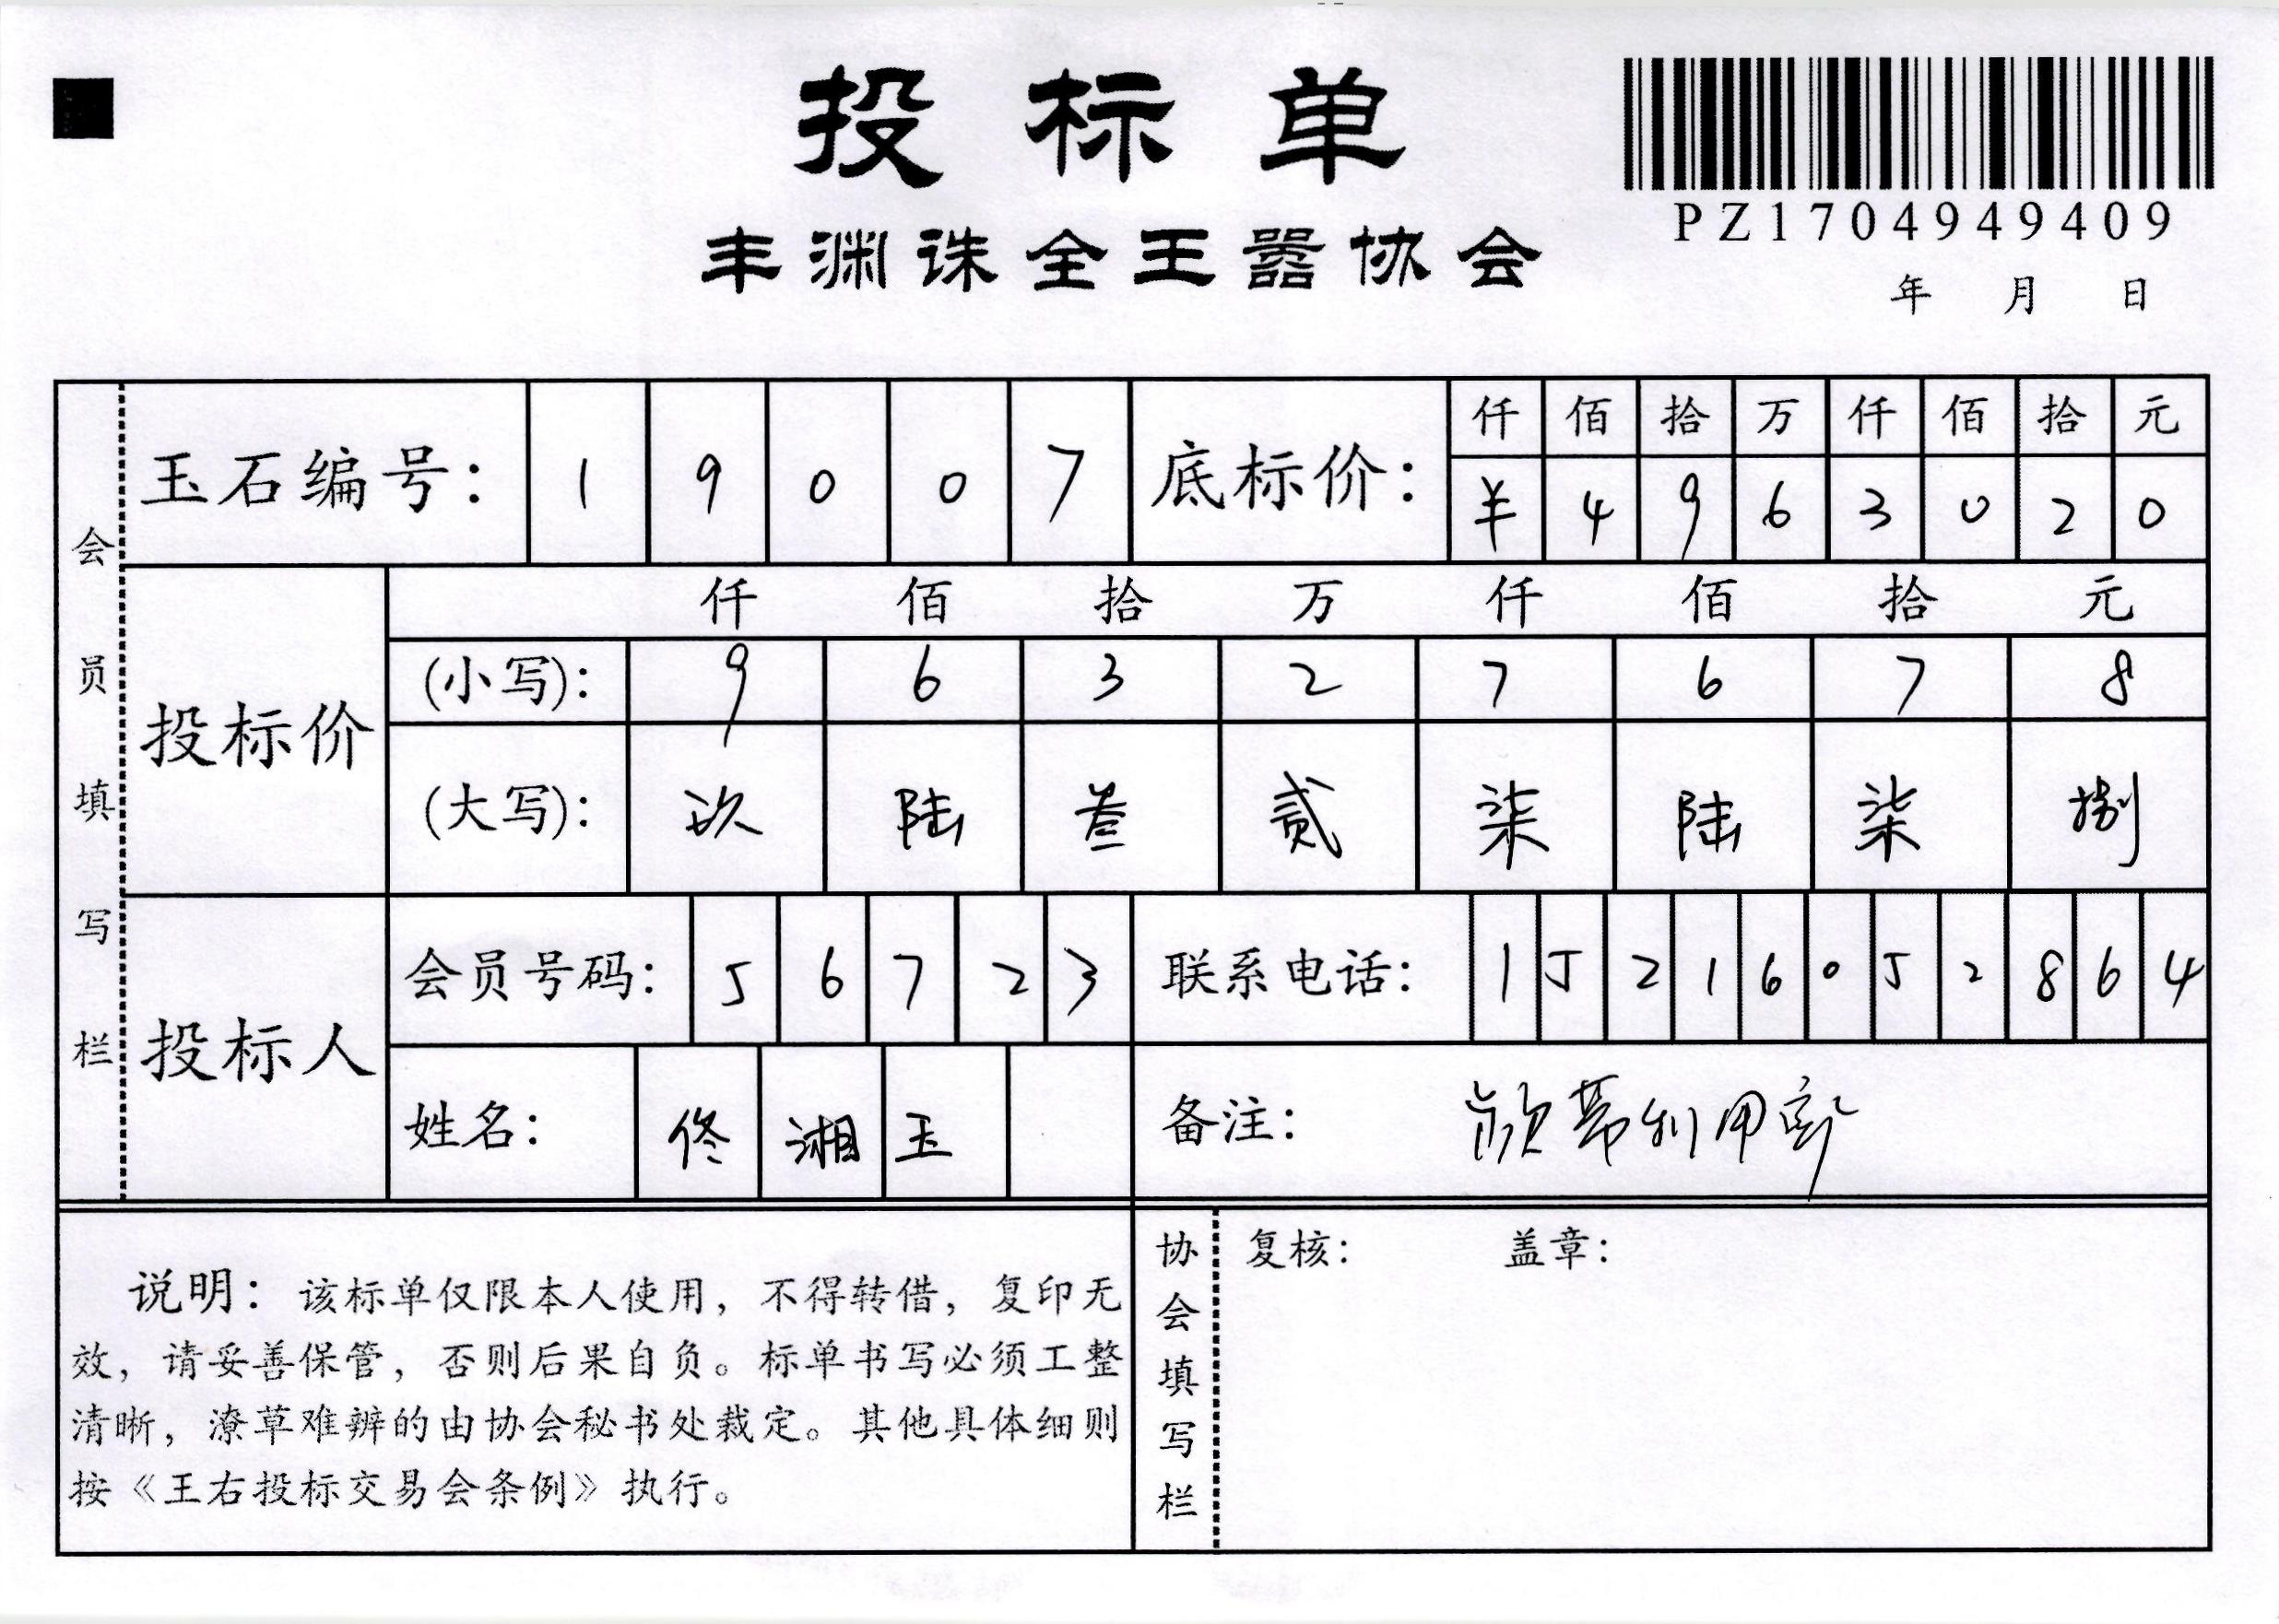 投标单
丰渊诛全王嚣协会
PZ1704949409
年 月 日
会员填写栏
玉石编号： 1 9 0 0 7
底标价： 仟 佰 拾 万 仟 佰 拾 元
¥ 4 9 6 3 0 2 0
投标价
仟 佰 拾 万 仟 佰 拾 元
(小写)： 9 6 3 2 7 6 7 8
(大写)： 玖 陆 叁 贰 柒 陆 柒 捌
投标人
会员号码： 5 6 7 2 3
联系电话： 1 5 2 1 6 0 5 2 8 6 4
姓名： 佟 湘 玉
备注： 蒂利甲
说明：该标单仅限本人使用，不得转借，复印无
效，请妥善保管，否则后果自负。标单书写必须工整
清晰，潦草难辨的由协会秘书处裁定。其他具体细则
按《王右投标交易会条例》执行。
协会填写栏
复核： 盖章：